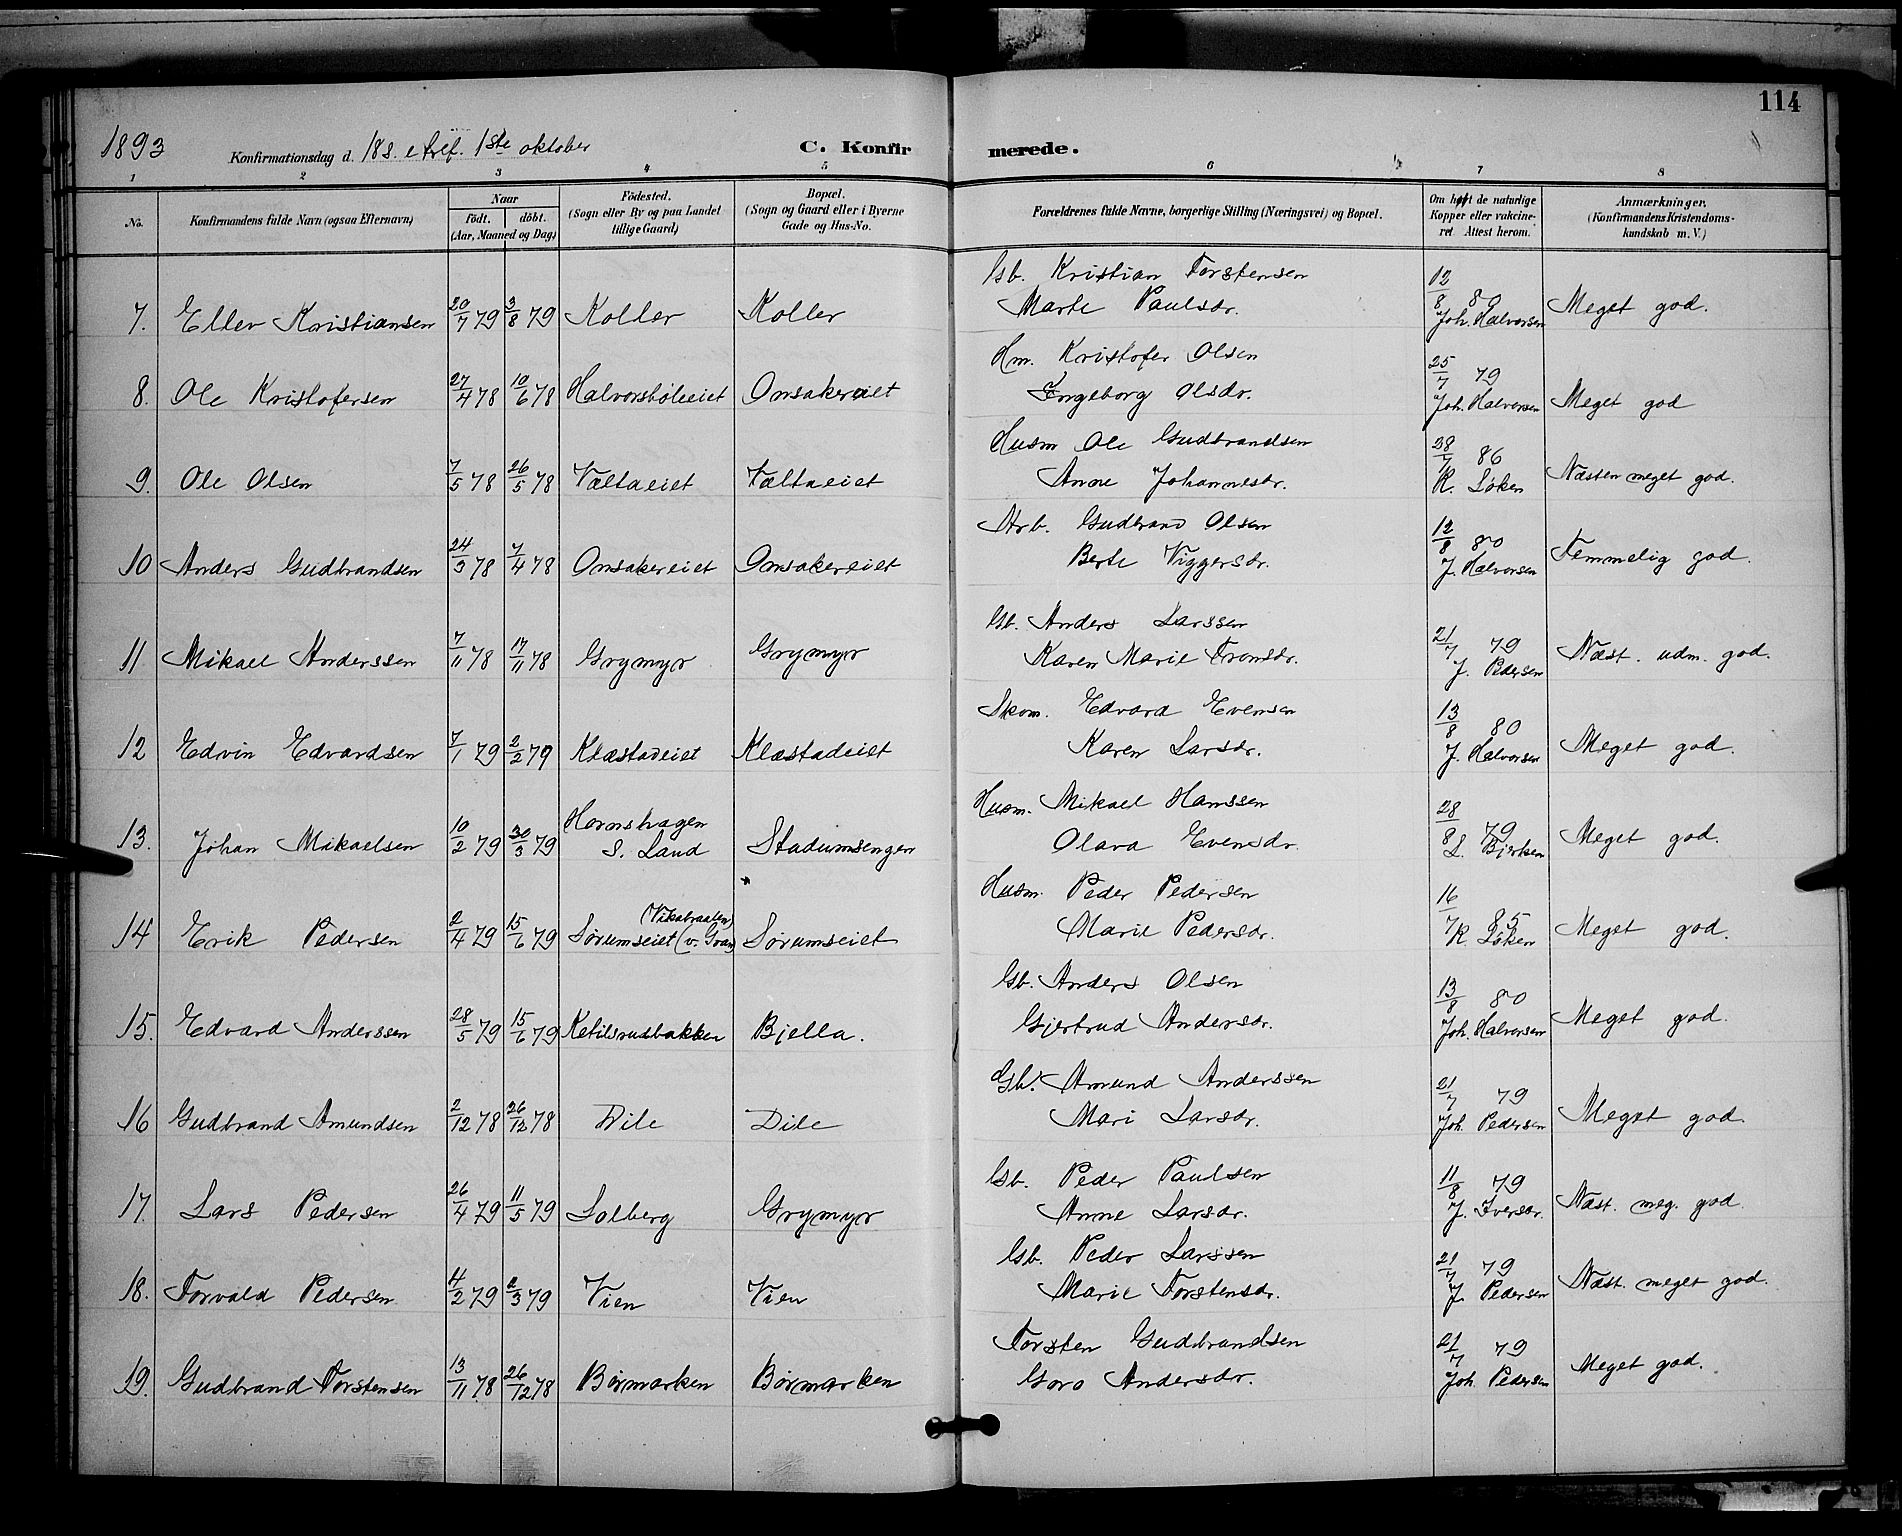 114
1893 Konfirmationsdag d. 18 s. e tref. 1ste oktober C. Konfir merede.
1 2 3 4 5 6 7 8
No. Konfirmandens fulde Navn (ogsaa Efternavn) Naar født. døbt. (Aar, Maaned og Dag) Födested. (Sogn eller By og paa Landet tillige Gaard) Bopæl. (Sogn og Gaard eller i Byerne Gade og Hus-No. Forældrenes fulde Navne, borgerlige Stilling (Næringsvei) og Bopæl. Om haft de naturlige Kopper eller vakcineret Attest herom. Anmærkninger. (Konfirmandens Kristendomskundskab m. V.)
7. Ellev Kristiansen 20/7 79 3/8 79 Koller Koller Gb. Kristian Torstensen Marte Paulsdr. 12/8 80 Joh. Halvorsen Meget god.
8. Ole Kristofersen 27/4 78 10/6 78 Halvorsbøleeiet Onsakereiet Hm. Kristofer Olsen Ingeborg Olsdr. 25/7 79 Joh. Halvorsen Meget god
9. Ole Olsen 7/5 78 26/5 78 Væltaeiet Væltaeiet Husm Ole Gudbrandsen Anne Johannesdr. 86 K. Løken Næsten meget god.
10 Anders Gudbrandsen 24/3 78 7/4 78 Onsakereiet Onsakereiet Arb. Gudbrand Olsen Berte Viggersdr. 12/8 80 J. Halvorsen Temmelig god.
11 Mikael Anderssen 7/11 78 17/11 78 Grymyr Grymyr Gb. Anders Larssen Karen Marie Tronsdr. 21/7 79 J. Pedersen Næst. udm. god.
12 Edvin Edvardsen 7/1 79 2/2 79 Klæstadeiet Klæstadeiet Skom. Edvard Evensen Karen Larsdr. 13/8 80 J. Halvorsen Meget god.
13. Johan Mikaelsen 10/2 79 30/3 79 Hornshagen S. Land Stadumsengen Husm. Mikael Hanssen Olava Evensdr. 28/8 79 L. Bjerken Meget god.
14 Erik Pedersen 2/4 79 15/6 79 Sørumseiet (Vikabraaten) (v. Gran) Sørumseiet Husm. Peder Pedersen Marie Pedersdr. 16/7 85 K. Løken Meget god.
15. Edvard Anderssen 28/5 79 15/6 79 Ketilsrudbakken Bjella. Gb. Anders Olsen Gjertrud Andersdr. 13/8 80 Joh. Halvorsen Meget god.
16 Gudbrand Amundsen 2/12 78 26/12 78 Dile Gb. Amund Anderssen Mari Larsdr. 21/7 79 Joh. Pedersen Meget god.
17. Lars Pedersen 26/4 79 11/5 79 Solberg Grymyr Gb. Peder Paulsen Anne Larsdr. 11/8 79 J. Iversdr. Næst. meg. god.
18. Torvald Pedersen 4/2 79 2/3 79 Vien Vien Gb. Peder Larssen Marie Torstensdr. 21/7 79 J. Pedersen Næst. meget god.
19. Gudbrand Torstensen 13/11 78 26/12 78 Børmarken Børmarken Torsten Gudbrandsen Goro Andersdr. 21/7 79 Joh. Pedersen Meget god.